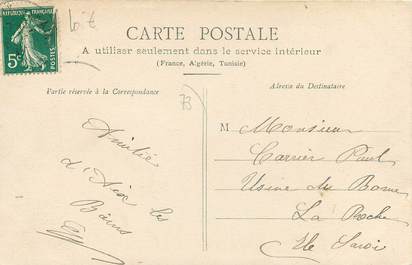 RÉPUBLIQUE FRANÇAISE
5c
POSTES
CARTE POSTALE
A utiliser seulement dans le service intérieur
(France, Algérie, Tunisie)
Partie réservée à la Correspondance
Adresse du Destinataire
73
Amitié
d'Aix les
Bains
M Monsieur
Carrier Paul
Usine du Borne
La Roche
Hte Savoie